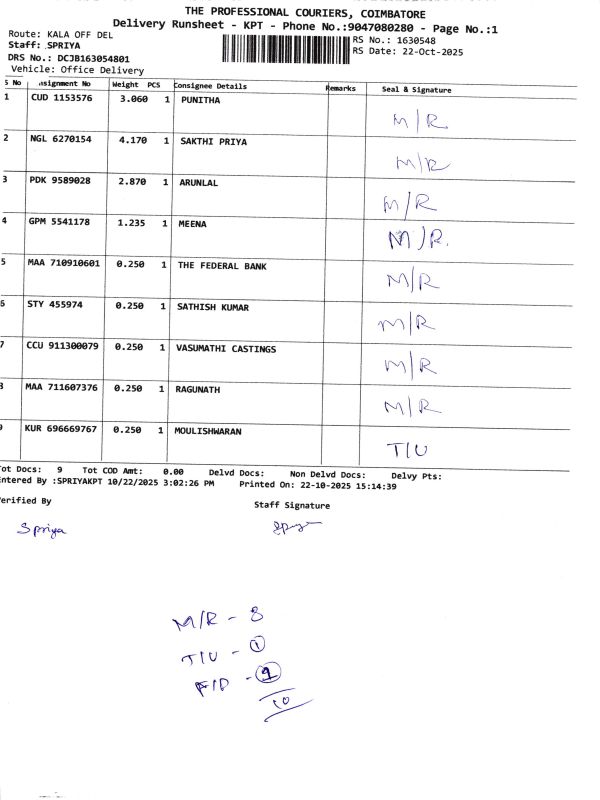 THE PROFESSIONAL COURIERS, COIMBATORE
Delivery Runsheet - KPT - Phone No.:9047080280 - Page No.:1
Route: KALA OFF DEL
RS No.: 1630548
Staff: SPRIYA
RS Date: 22-Oct-2025
DRS No.: DCJB163054801
Vehicle: Office Delivery
S No signment No Weight PCS Consignee Details Remarks Seal & Signature
1 CUD 1153576 3.060 1 PUNITHA M/R
2 NGL 6270154 4.170 1 SAKTHI PRIYA M/R
3 PDK 9589028 2.870 1 ARUNLAL M/R
4 GPM 5541178 1.235 1 MEENA M/R.
5 MAA 710910601 0.250 1 THE FEDERAL BANK M/R
6 STY 455974 0.250 1 SATHISH KUMAR M/R
7 CCU 911300079 0.250 1 VASUMATHI CASTINGS M/R
8 MAA 711607376 0.250 1 RAGUNATH M/R
9 KUR 696669767 0.250 1 MOULISHWARAN T/U
ot Docs: 9 Tot COD Amt: 0.00 Delvd Docs: Non Delvd Docs: Delvy Pts:
ntered By :SPRIYAKPT 10/22/2025 3:02:26 PM Printed On: 22-10-2025 15:14:39
erified By
Staff Signature
Spriya
M/R - 8
T/U - 1
F/D - 1
10